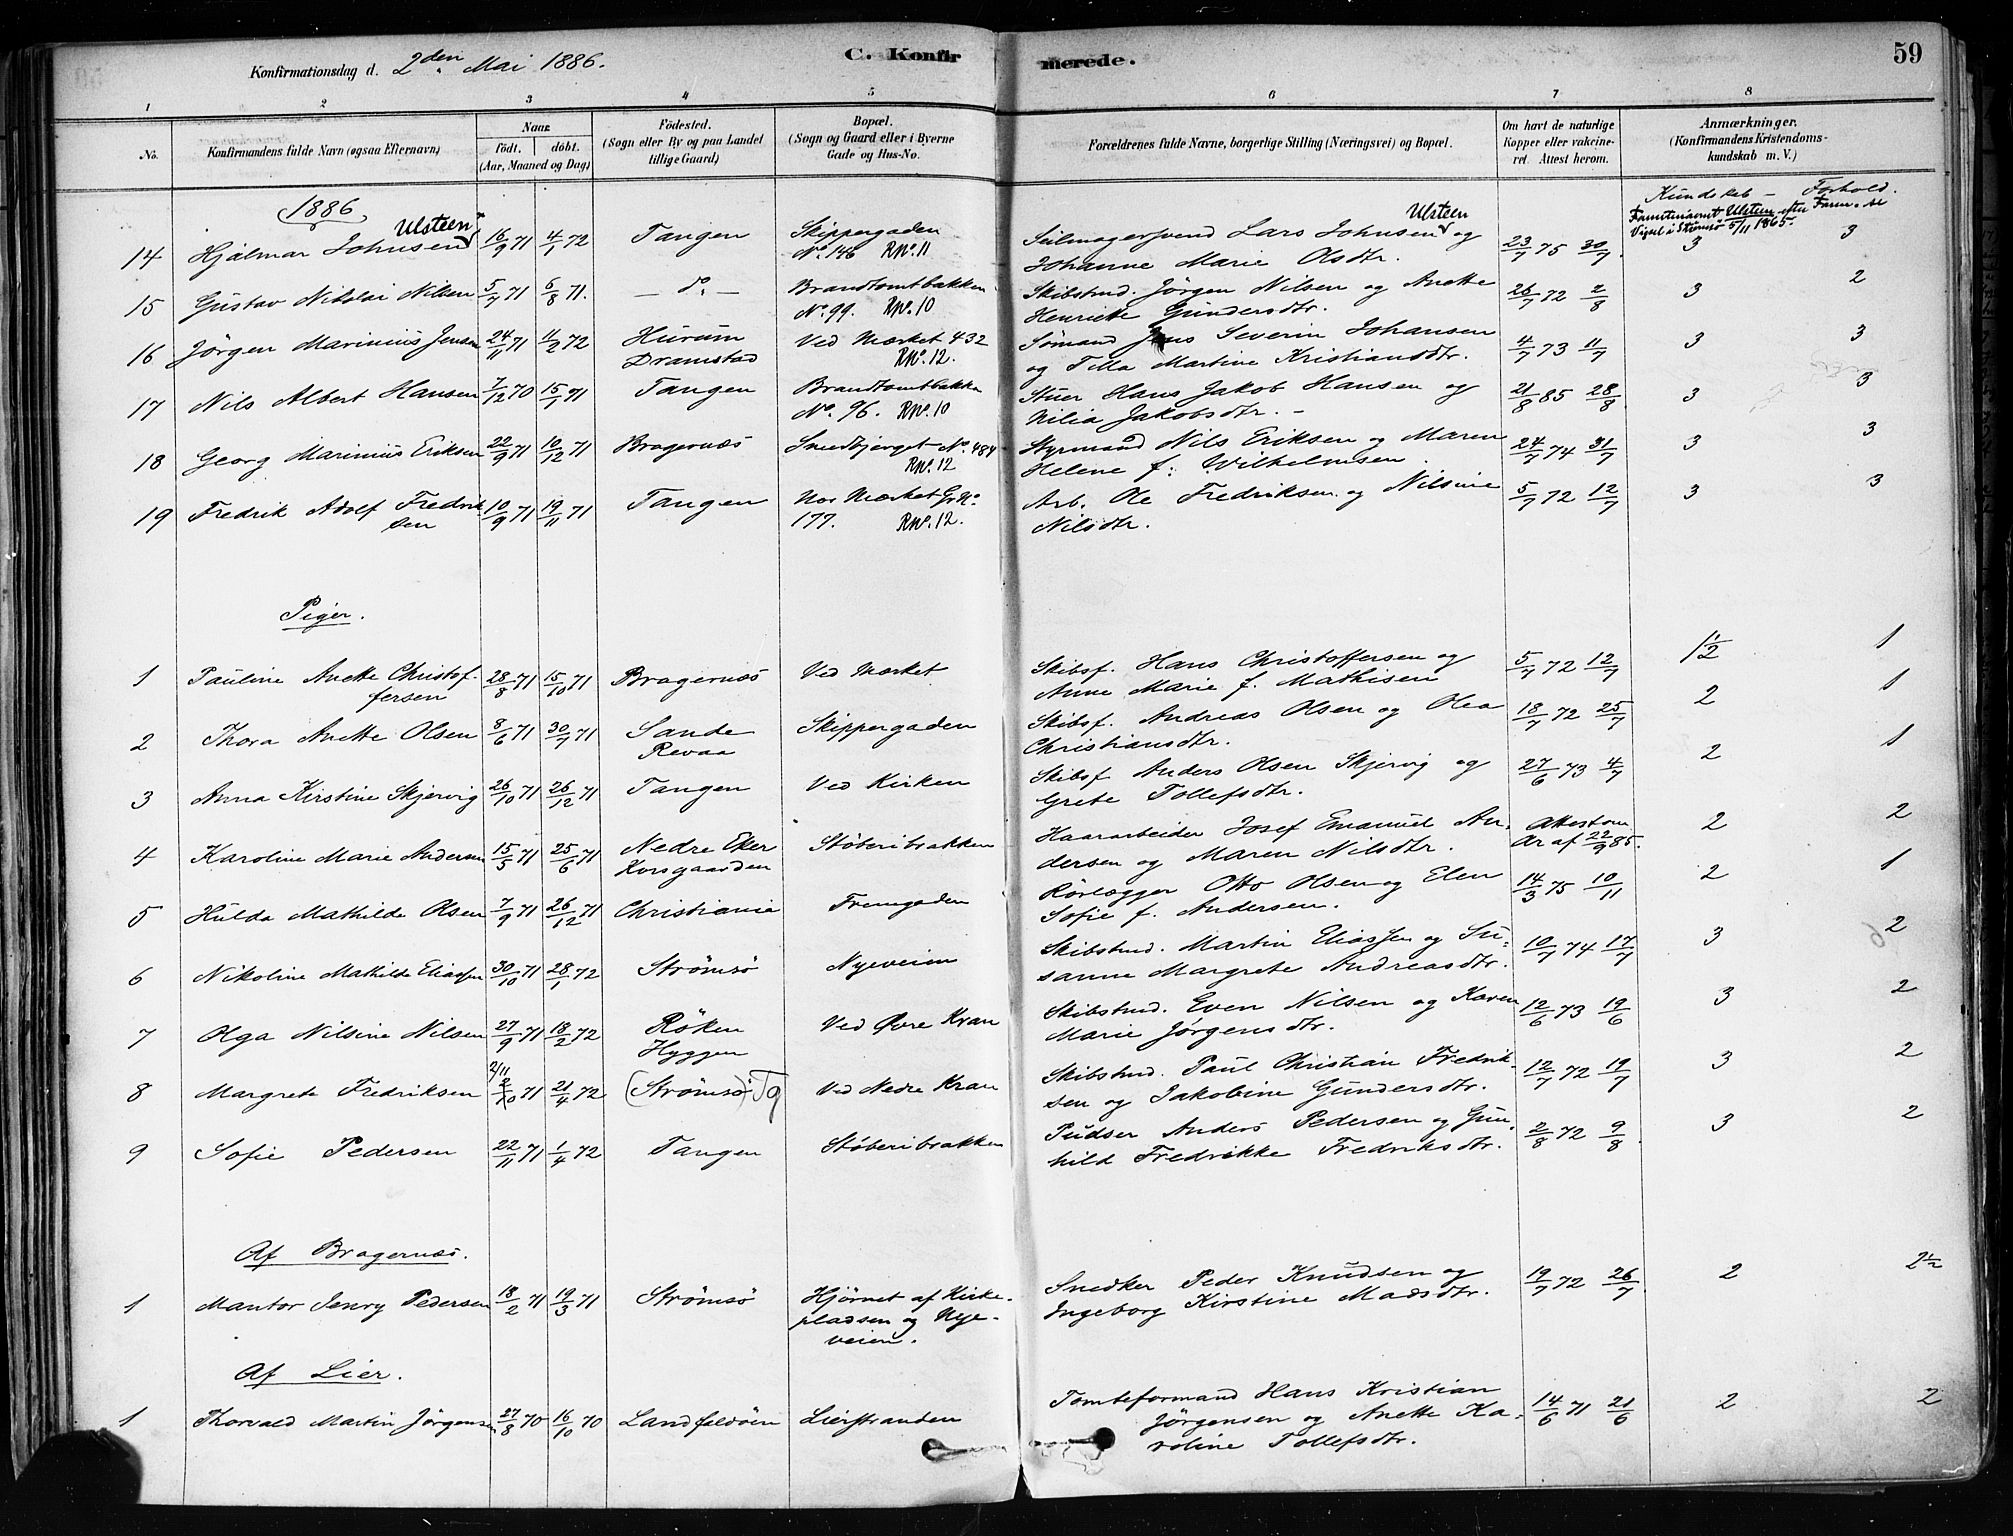 Konfirmationsdag d. 2den Mai 1886. C. Konfirmerede. 59
1 2 3 4 5 6 7 8
No. Konfirmandens fulde Navn (ogsaa Efternavn) Naar født. døbt. (Aar, Maaned og Dag) Fødested. (Sogn eller By og paa Landet tillige Gaard) Bopæl. (Sogn og Gaard eller i Byerne Gade og Hus-No. Forældrenes fulde Navne, borgerlige Stilling (Næringsvei) og Bopæl. Om havt de naturlige Kopper eller vakcineret. Attest herom. Anmærkninger. (Konfirmandens Kristendomskundskab m. V.)
1886 Kundskab – Forhold.
Ulsteen Ulsteen Familienavnet Ulsteen efter Faren. se
Vigsel i Strømsø 5/11 1865.
14 Hjalmar Johnsen 16/9 71 4/1 72 Tangen Skippergaden Seilmagersvend Lars Johnsen og 23/7 75 30/7 3 3
No. 146 RNo. 11 Johanne Marie Olsdtr.
15 Gustav Nikolai Nilsen 5/7 71 6/8 71. – do. – Brandtomtbakken Skibstmd. Jørgen Nilsen og Anette 26/7 72 2/8 3 2
No. 99. RNo. 10 Henriette Gundersdtr.
16 Jørgen Marinius Jensen 24/11 71 11/2 72 Hurum Ved Mærket 432 Sømand Jens Severin Johansen 4/7 73 11/7 3 3
Dramstad RNo. 12. og Tilla Martine Kristiansdtr.
17 Nils Albert Hansen 7/12 70 15/1 71 Tangen Brandtomtbakken Stuer Hans Jakob Hansen og 21/8 85 28/8 3 3
No. 96. RNo. 10 Nilia Jakobsdtr. –
18 Georg Marinius Eriksen 22/9 71 10/12 71 Bragernæs Snedbjerget No. 484 Styrmand Nils Eriksen og Maren 24/7 74 31/7 3 3
RNo. 12 Helene f. Wilhelmsen.
19 Fredrik Adolf Fredrik- 10/9 71 19/11 71 Tangen Nær Mærket Gr No. Arb. Ole Fredriksen og Nilsine 5/7 72 12/7 3 3
sen 177. RNo. 12. Nilsdtr.
Piger.
1 Pauline Anette Christof- 28/8 71 15/10 71 Bragernæs Ved Mærket Skibsf. Hans Christoffersen og 5/7 72 12/7 1½ 1
fersen Anne Marie f. Mathisen
2 Thora Anette Olsen 8/6 71 30/7 71 Sande Skippergaden Skibsf. Andreas Olsen og Olea 18/7 72 25/7 2 1
Revaa Christiansdtr.
3 Anna Kirstine Skjervig 26/10 71 26/12 71 Tangen Ved Kirken Skibsf. Anders Olsen Skjervig og 27/6 73 4/7 2 1
Grete Tollefsdtr.
4 Karoline Marie Andersen 15/5 71 25/6 71 Nedre Eker Støberibakken Haararbeider Josef Emanuel An- Attest om 2 2
Korsgaarden dersen og Maren Nilsdtr. Ar af 22/9 85.
5 Hulda Mathilde Olsen 7/9 71 26/12 71 Christiania Fremgaden Rørlægger Otto Olsen og Elen 14/3 75 10/11 2 1
Sofie f. Andersen.
6 Nikoline Mathilde Eliassen 30/10 71 28/1 72 Strømsø Nyeveien Skibstmd. Martin Eliassen og Su- 10/7 74 17/7 3 2
sanne Margrete Andreasdtr.
7 Olga Nilsine Nilsen 27/9 71 18/2 72 Røken Ved Øvre Kran Skibstmd. Even Nilsen og Karen 12/6 73 19/6 3 2
Hyggen Marie Jørgensdtr.
2/11
8 Margrete Fredriksen 2/10 71 21/4 72 (Strømsø) Tg Ved Nedre Kran Skibstmd. Paul Christian Fredrik- 12/7 72 19/7 3 2
sen og Jakobine Gundersdtr.
9 Sofie Pedersen 22/11 71 1/4 72 Tangen Støberibakken Pudser Anders Pedersen og Gun- 2/8 72 9/8 3 2
hild Fredrikke Fredriksdtr.
Af Bragernæs.
1 Mantor Henry Pedersen 18/2 71 19/3 71 Strømsø Hjørnet af Kirke- Snedker Peder Knudsen og 19/7 72 26/7 2 2½
pladsen og Nye- Ingeborg Kirstine Madsdtr.
veien.
Af Lier.
1 Thorvald Martin Jørgensen 27/8 70 16/10 70 Landfaldøen Lierstranden Tomteformand Hans Kristian 14/6 71 21/6 2 2
Jørgensen og Anette Ka-
roline Tollefsdtr.